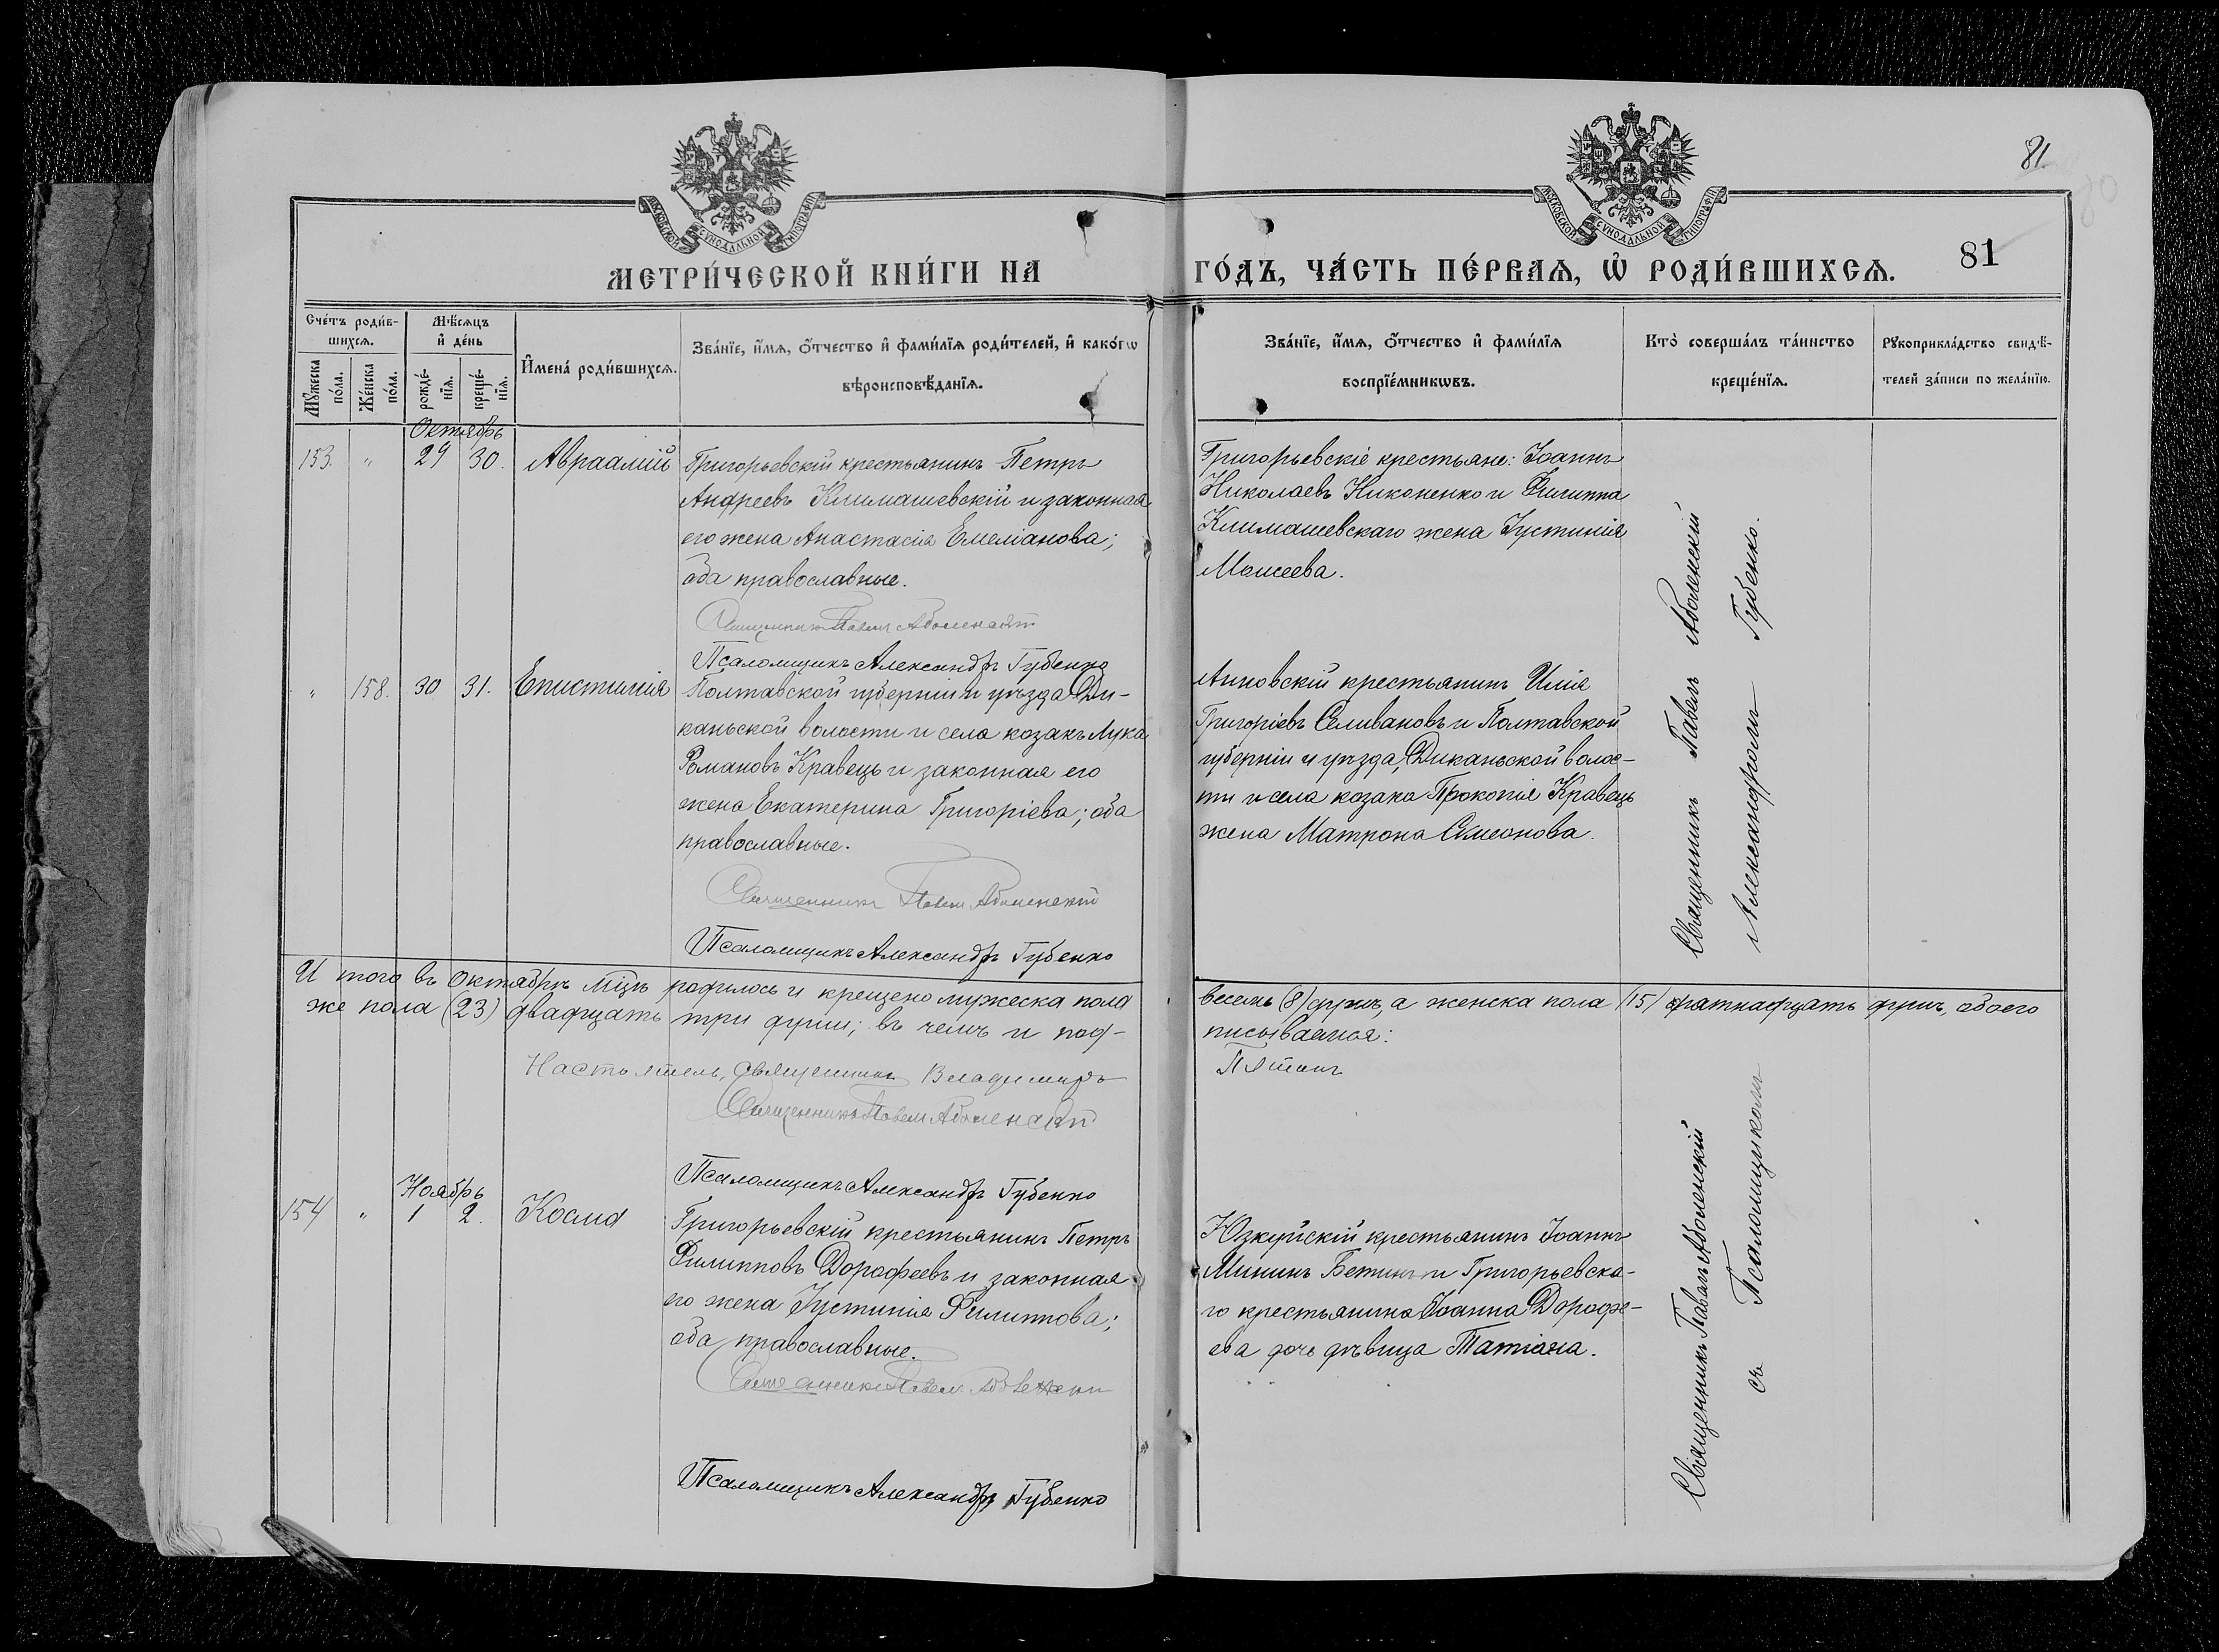 81.
МОСКОВСКОЙ СѴНОДАЛЬНОЙ ТИПОГРАФІИ
МОСКОВСКОЙ СѴНОДАЛЬНОЙ ТИПОГРАФІИ
81
МЕТРИ́ЧЕСКОЙ КНИ́ГИ НА ГО́ДЪ, ЧА́СТЬ ПЕ́РВАѦ, Ѡ҆ РОДИ́ВШИХСѦ.
Сче́тъ роди́в-
шихсѧ.
Мꙋжеска
по́ла.
Же́нска
по́ла.
Мѣ́сѧцъ
и҆ де́нь
рожде́-
нїѧ.
креще́-
нїѧ.
И҆мена̀ роди́вшихсѧ.
Зва́нїе, и҆́мѧ, ѻ҆́тчество и҆ фами́лїѧ роди́телей, и҆ како́гѡ
вѣроисповѣ́данїѧ.
Зва́нїе, и҆́мѧ, ѻ҆́тчество и҆ фами́лїѧ
воспрїе́мникѡвъ.
Кто̀ соверша́лъ та́инство
креще́нїѧ.
Рꙋкоприкла́дство свидѣ́-
телей за́писи по жела́нїю.
Октябрь
153. " 29 30. Авраамій
Григорьевскій крестьянинъ Петръ
Андреевъ Климашевскій и законная
его жена Анастасія Емеліанова;
оба православные.
Священникъ Павелъ Аболенскій
Псаломщикъ Александръ Губенко
Григорьевскіе крестьяне: Іоаннъ
Николаевъ Никоненко и Филиппа
Климашевскаго жена Іустинія
Моисеева.
Священникъ Павелъ Аболенскій
Александромъ Губенко.
" 158. 30 31. Епистимія
Полтавской губерніи и уѣзда Ди-
каньской волости и села козакъ Лука
Романовъ Кравець и законная его
жена Екатерина Григоріева; оба
православные.
Священникъ Павелъ Аболенскій
Псаломщикъ Александръ Губенко
Анновскій крестьянинъ Илія
Григоріевъ Селивановъ и Полтавской
губерніи и уѣзда, Диканьской волос-
ти и села козака Прокопія Кравець
жена Матрона Симеонова.
И того въ октябрѣ мцѣ родилось и крещено мужеска пола весемь (8) душъ, а женска пола (15) пятнадцать душъ, обоего
же пола (23) двадцать три души; въ чемъ и под-писываемся:
Настоятель, священникъ Владимиръ Пятинъ
Священникъ Павелъ Аболенскій
Псаломщикъ Александръ Губенко
Ноябрь
154 " 1 2. Косма
Григорьевскій крестьянинъ Петръ
Филипповъ Дорофеевъ и законная
его жена Іустинія Филиппова;
оба православные.
Священникъ Павелъ
Псаломщикъ Александръ Губенко
Юзкуйскій крестьянинъ Іоаннъ
Мининъ Бетинъ и Григорьевска-
го крестьянина Іоанна Дорофе-
ева дочь дѣвица Татіана.
Священникъ Павелъ Аболенскій
съ Псаломщикомъ